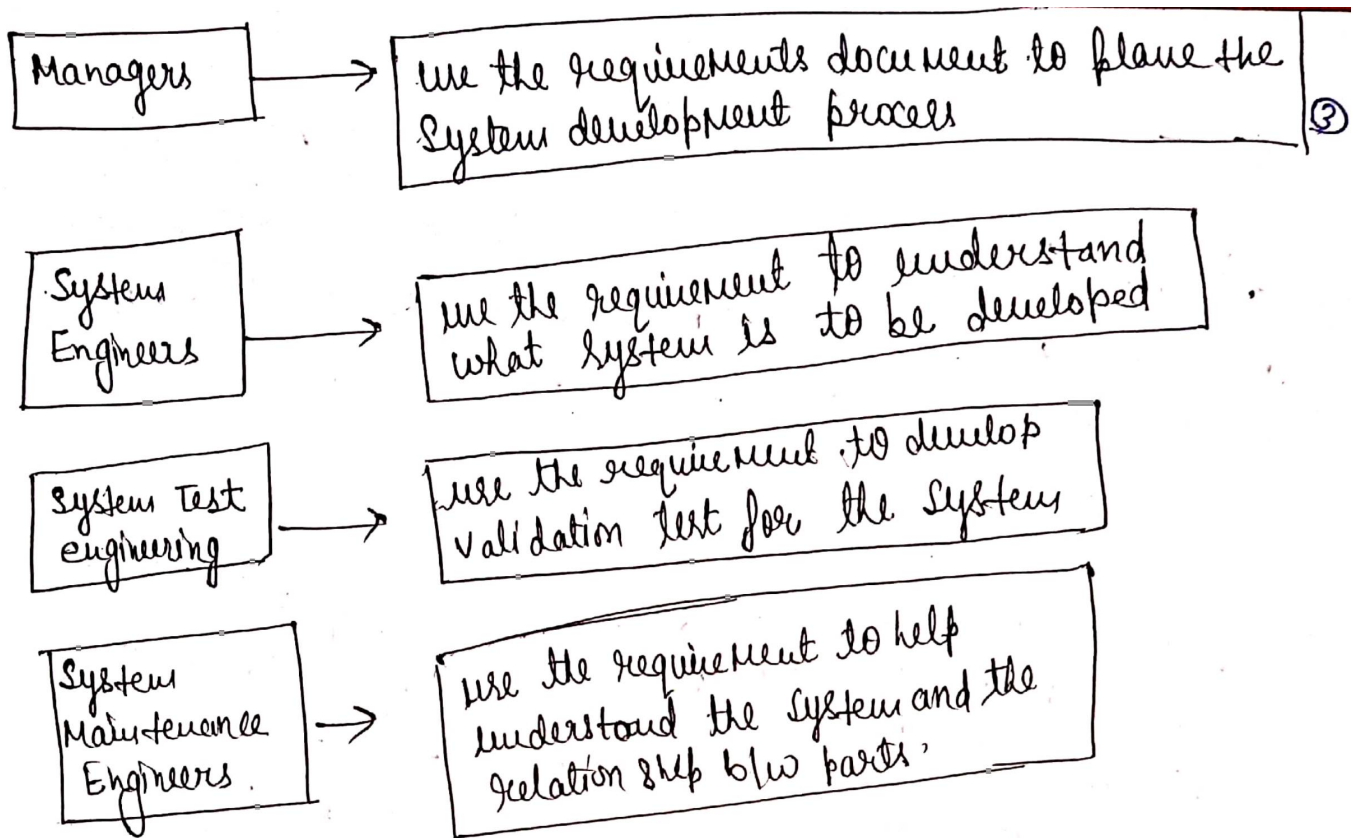 Managers
use the requirements document to plane the
System development process
③
System
Engineers
use the requirement to understand
what system is to be developed
System Test
engineering
use the requirement to develop
validation test for the system
System
Maintenance
Engineers.
use the requirement to help
understand the system and the
relation ship b/w parts.